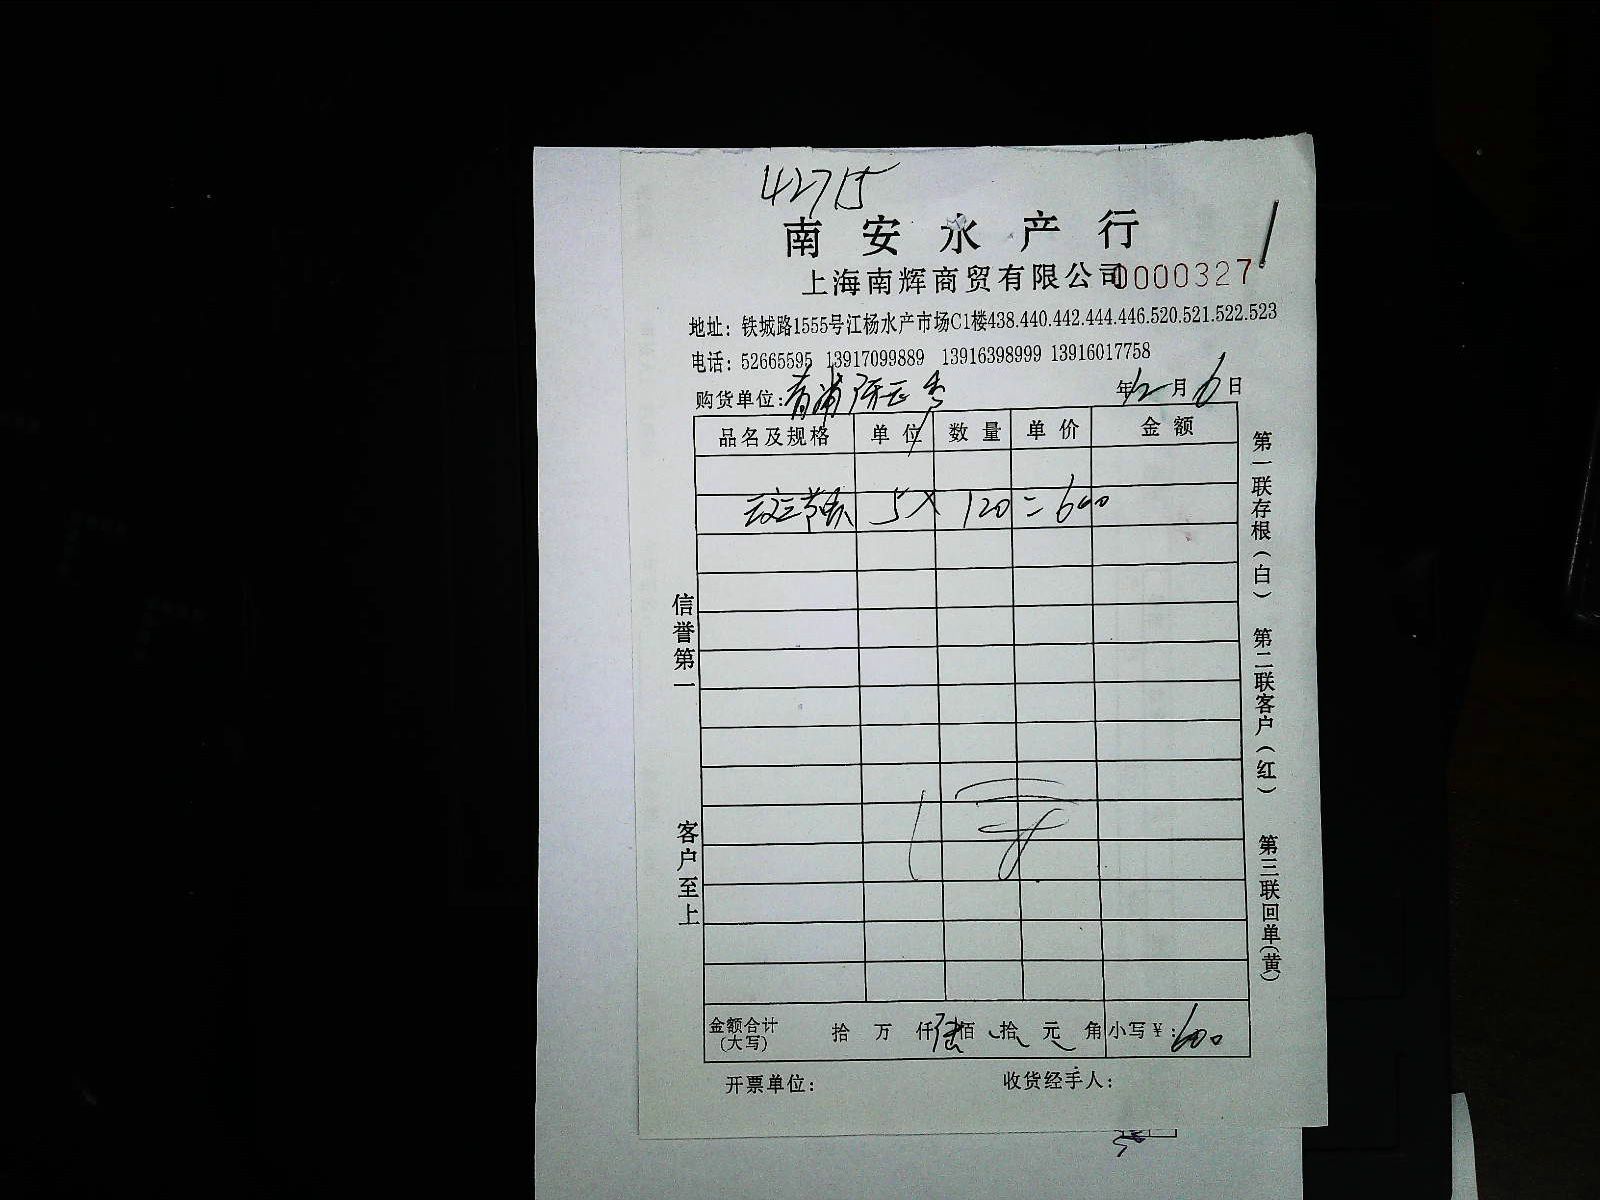 42715
南安水产行
上海南辉商贸有限公司 0000327
地址：铁城路1555号江杨水产市场C1楼438.440.442.444.446.520.521.522.523
电话：52665595 13917099889 13916398999 13916017758
购货单位：青浦 年12月6日
品名及规格 单位 数量 单价 金额
5× 120=600
信誉第一
客户至上
第一联存根（白） 第二联客户（红） 第三联回单（黄）
金额合计（大写） 拾 万 仟陆佰 拾 元 角 小写￥：600
开票单位： 收货经手人：